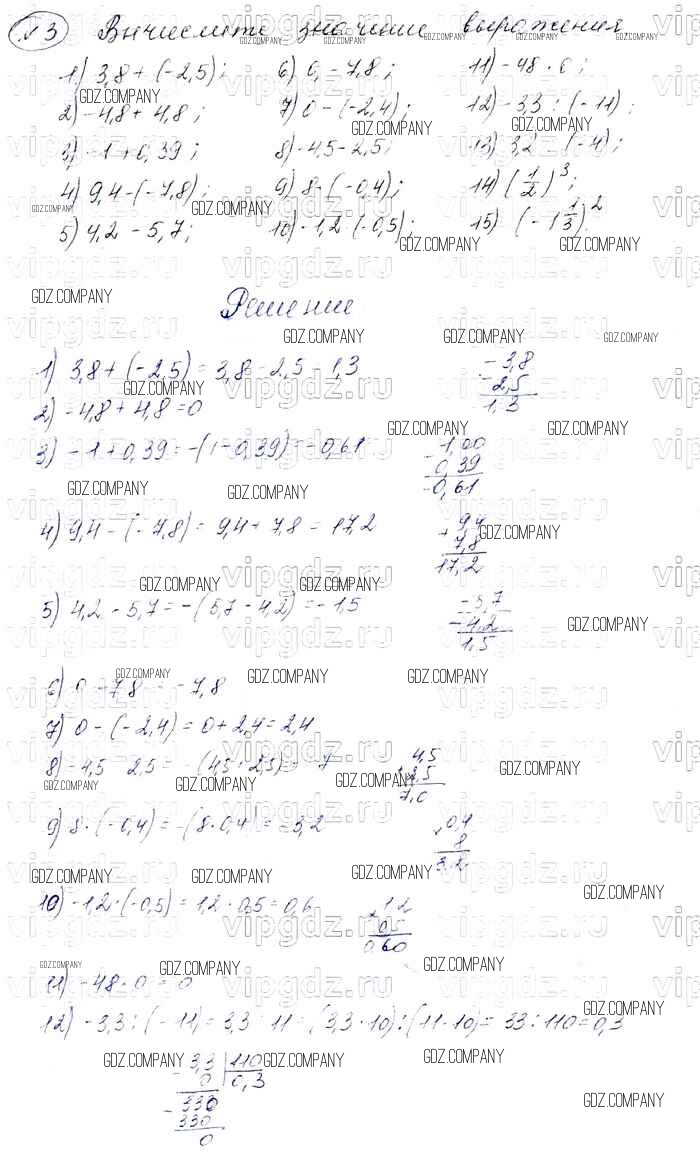 №3 Вычислите значение выражения
1) 3,8 + (-2,5); 6) 0 - 7,8; 11) -48 · 0;
2) -4,8 + 4,8; 7) 0 - (-2,4); 12) -3,3 : (-11);
3) -1 + 0,39; 8) -4,5 - 2,5; 13) 3,2 : (-4);
4) 9,4 - (-7,8); 9) 8 · (-0,4); 14) (1/2)³;
5) 4,2 - 5,7; 10) -1,2 · (-0,5); 15) (-1 1/3)²
Решение
1) 3,8 + (-2,5) = 3,8 - 2,5 = 1,3
3,8
2,5
1,3
2) -4,8 + 4,8 = 0
3) -1 + 0,39 = -(1 - 0,39) = -0,61
1,00
0,39
0,61
4) 9,4 - (-7,8) = 9,4 + 7,8 = 17,2
+ 9,4
7,8
17,2
5) 4,2 - 5,7 = -(5,7 - 4,2) = -1,5
5,7
4,2
1,5
6) 0 - 7,8 = -7,8
7) 0 - (-2,4) = 0 + 2,4 = 2,4
8) -4,5 - 2,5 = -(4,5 + 2,5) = -7
4,5
2,5
7,0
9) 8 · (-0,4) = -(8 · 0,4) = -3,2
× 0,4
8
3,2
10) -1,2 · (-0,5) = 1,2 · 0,5 = 0,6
× 1,2
0,5
0,60
11) -48 · 0 = 0
12) -3,3 : (-11) = 3,3 : 11 = (3,3 · 10) : (11 · 10) = 33 : 110 = 0,3
3,3 | 110
0 | 0,3
330
330
0
GDZ.COMPANY
vipgdz.ru